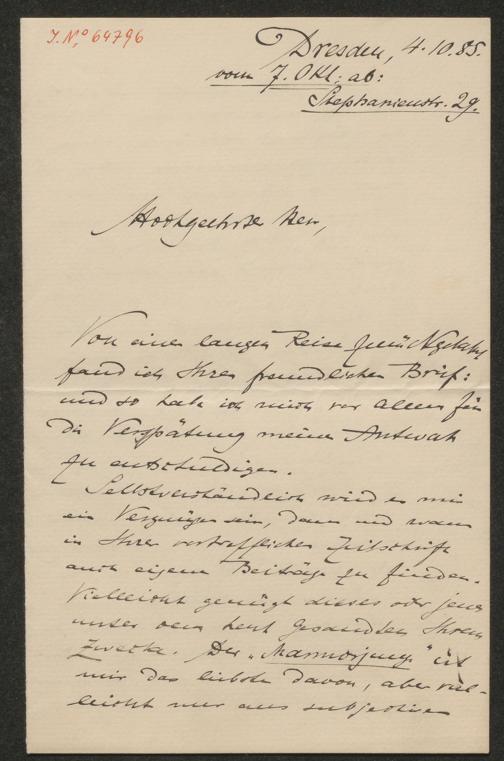 J. No 64796
Dresden, 4.10.85.
vom 7. Okt: ab:
Stephanienstr. 29.
Hochgeehrter Herr,
Von einer langen Reise zurückgekehrt
fand ich Ihren freundlichen Brief:
und so habe ich mich vor allem für
die Verspätung meiner Antwort
zu entschuldigen.
Selbstverständlich wird es mir
ein Vergnügen sein, dann und wann
in Ihrer vortrefflichen Zeitschrift
auch eigene Beiträge zu finden.
Vielleicht genügt dieses oder jenes
unter den heut gesandten Ihrem
Zwecke. Der „ ist
mir das liebste davon, aber viel-
leicht nur aus subjectiven